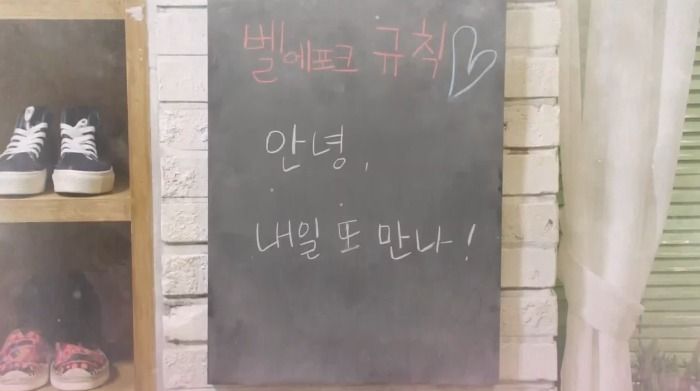 벨에포크 규칙
안녕,
내일 또 만나!